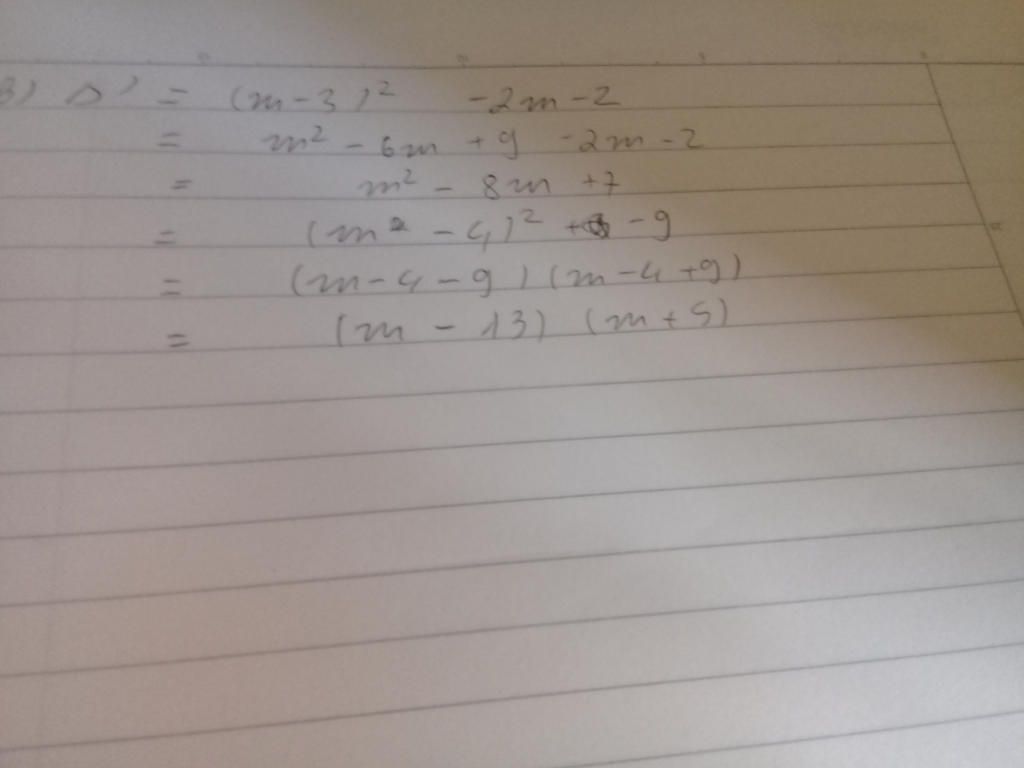 3) Δ' = (m-3)² -2m-2
= m² - 6m + 9 -2m-2
= m² - 8m +7
= (m - 4)² + -9
= (m-4-9) (m-4+9)
= (m - 13) (m+5)